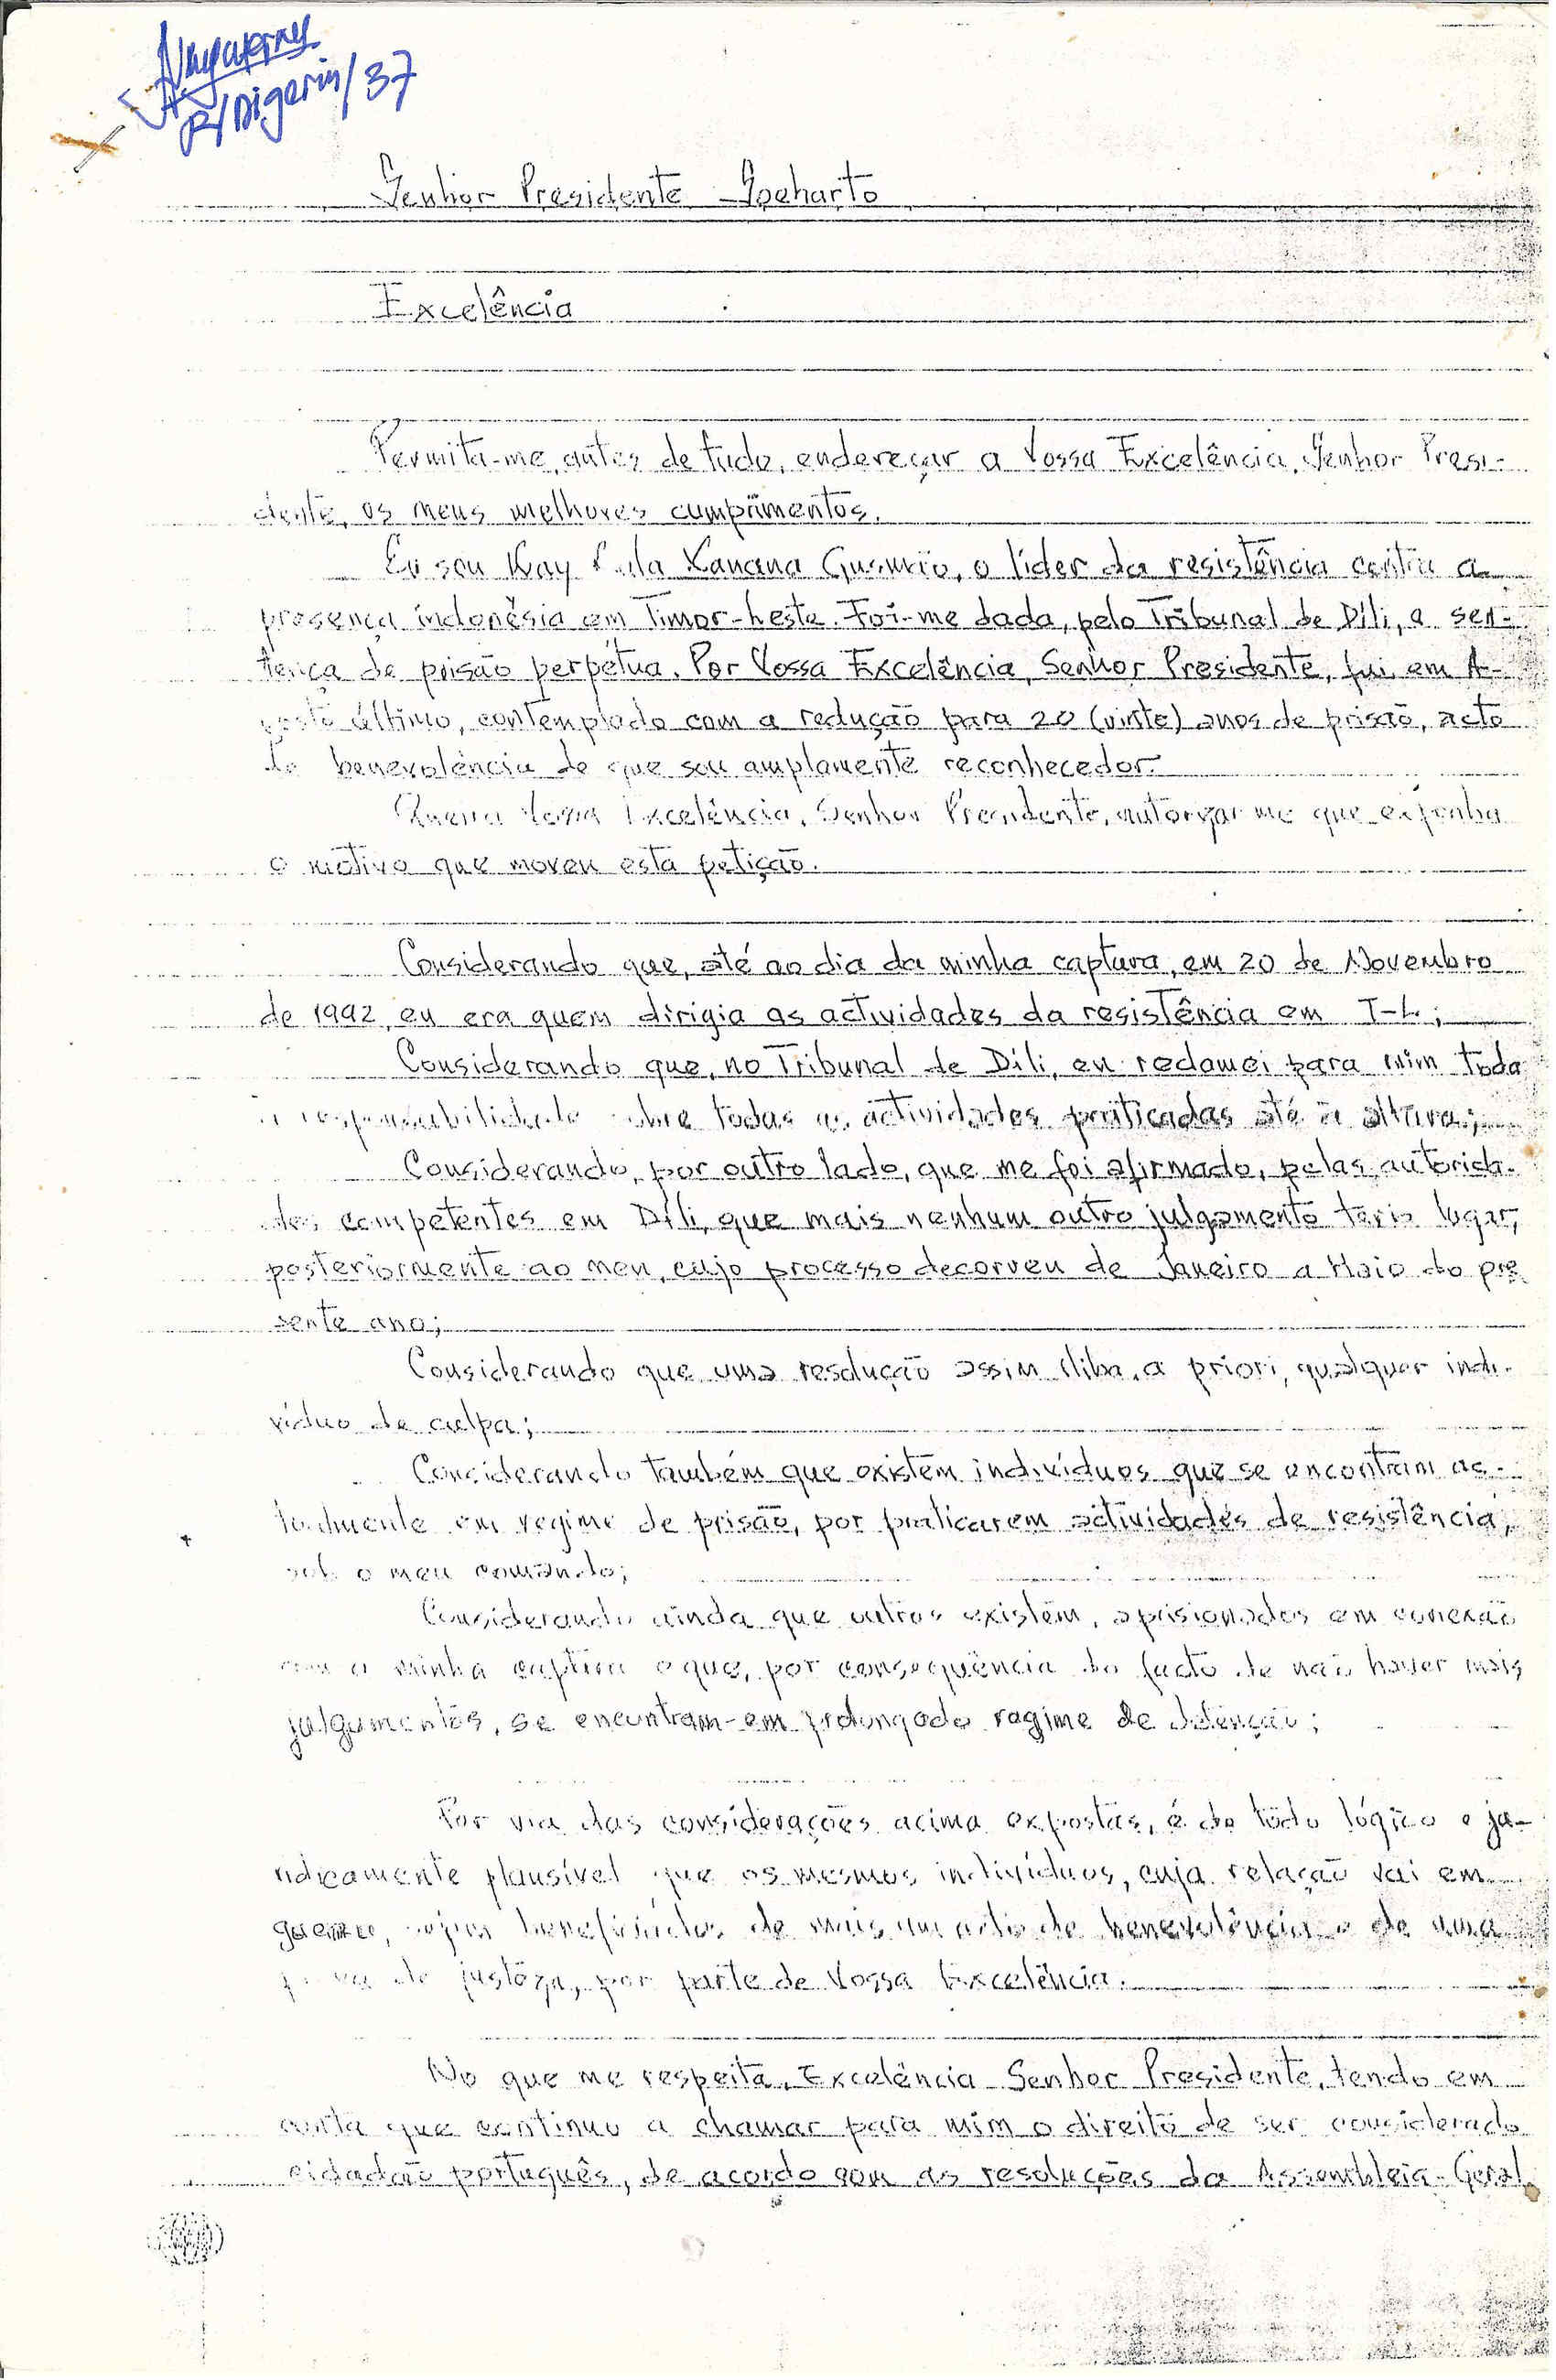 R/Digerin/37
Senhor Presidente Soeharto
Excelência
Permita-me, antes de tudo, endereçar a Vossa Excelência, Senhor Presi-
dente, os meus melhores cumprimentos.
Eu sou Kay Rala Xanana Gusmão, o líder da resistência contra a
presença indonésia em Timor-Leste. Foi-me dada, pelo Tribunal de Díli, a sen-
tença de prisão perpétua. Por Vossa Excelência, Senhor Presidente, fui, em A-
gosto último, contemplado com a redução para 20 (vinte) anos de prisão, acto
de benevolência de que sou amplamente reconhecedor.
Queira Vossa Excelência, Senhor Presidente, autorizar-me que exponha
o motivo que moveu esta petição.
Considerando que, até ao dia da minha captura, em 20 de Novembro
de 1992, eu era quem dirigia as actividades da resistência em T-L;
Considerando que, no Tribunal de Díli, eu reclamei para mim toda
a responsabilidade sobre todas as actividades praticadas até à altura;
Considerando, por outro lado, que me foi afirmado, pelas autorida-
des competentes em Díli, que mais nenhum outro julgamento teria lugar,
posteriormente ao meu, cujo processo decorreu de Janeiro a Maio do pre
sente ano;
Considerando que uma resolução assim iliba, a priori, qualquer indi-
víduo de culpa;
Considerando também que existem indivíduos que se encontram ac-
tualmente em regime de prisão, por praticarem actividades de resistência,
sob o meu comando;
Considerando ainda que outros existem, aprisionados em conexão
com a minha captura e que, por consequência do facto de não haver mais
julgamentos, se encontram em prolongado regime de detenção;
Por via das considerações acima expostas, é de todo lógico e ju-
ridicamente plausível que os mesmos indivíduos, cuja relação vai em
, sejam beneficiados de mais um acto de benevolência e de uma
prova de justeza, por parte de Vossa Excelência.
No que me respeita, Excelência Senhor Presidente, tendo em
conta que continuo a chamar para mim o direito de ser considerado
cidadão português, de acordo com as resoluções da Assembleia-Geral